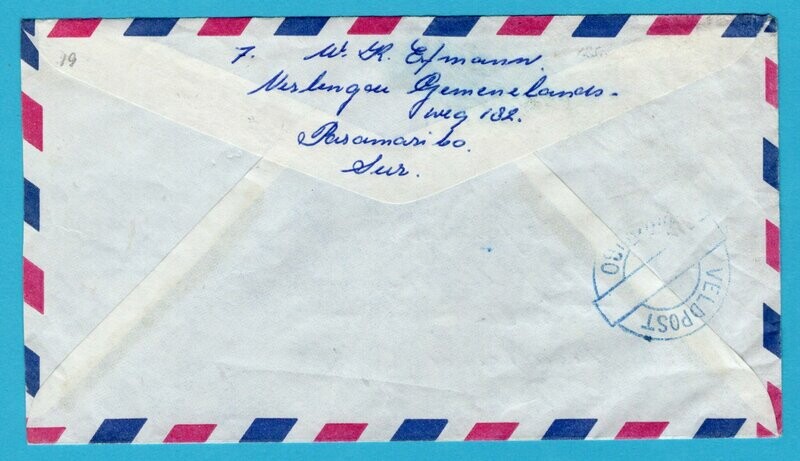 19
7. W. R. Efmann.
Verlengde Gemenelands-
weg 182.
Paramaribo.
Sur.
VELDPOST